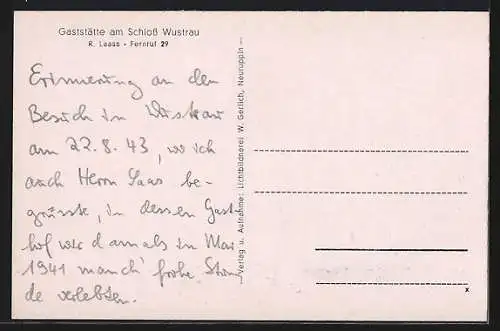 Gaststätte am Schloß Wustrau
R. Laass - Fernruf 29
Erinnerung an den
Besuch in Wustrau
am 22.8.43, wo ich
auch Herrn Laas be-
grüsste, in dessen Gast-
hof wir damals in Mai
1941 manch' frohe Stun-
de verlebten.
Verlag u. Aufnahme: Lichtbildnerei W. Gerlich, Neuruppin
x